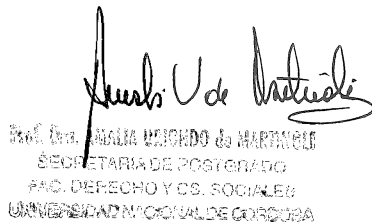 Prof. Dra. AMALIA URIONDO de MARTINOLI
SECRETARIA DE POSTGRADO
FAC. DERECHO Y CS. SOCIALES
UNIVERSIDAD NACIONAL DE CORDOBA